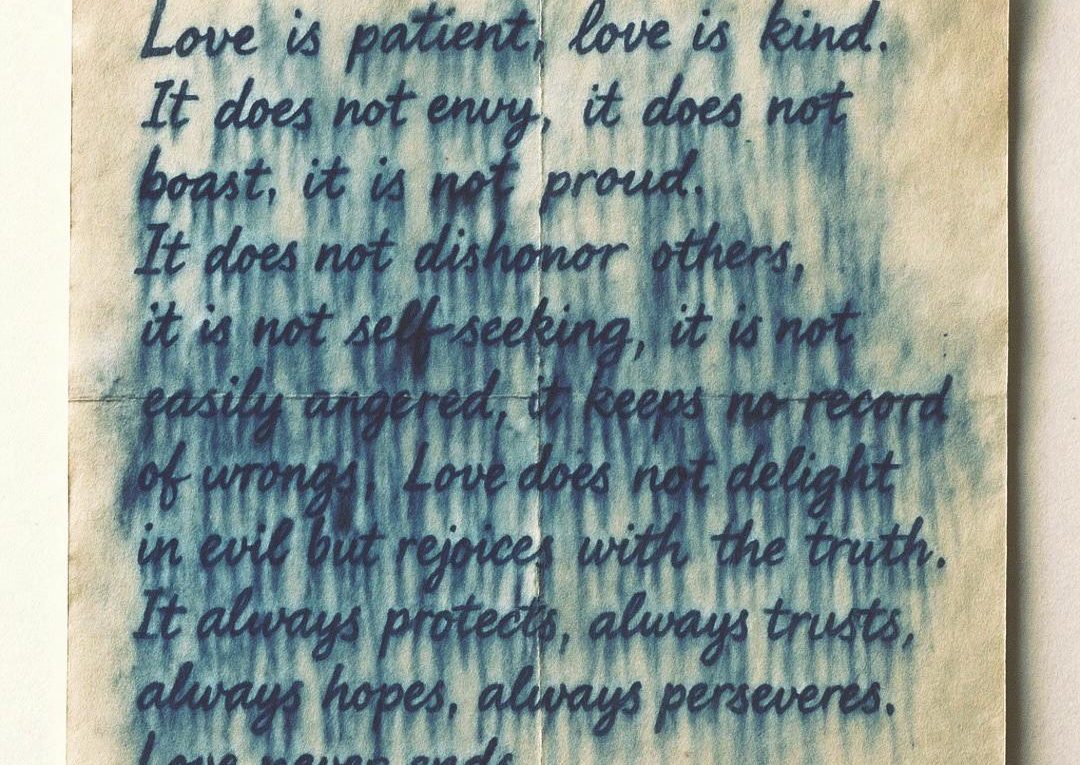 Love is patient, love is kind.
It does not envy, it does not
boast, it is not proud.
It does not dishonor others,
it is not self-seeking, it is not
easily angered, it keeps no record
of wrongs, Love does not delight
in evil but rejoices with the truth.
It always protects, always trusts,
always hopes, always perseveres.
Love never ends